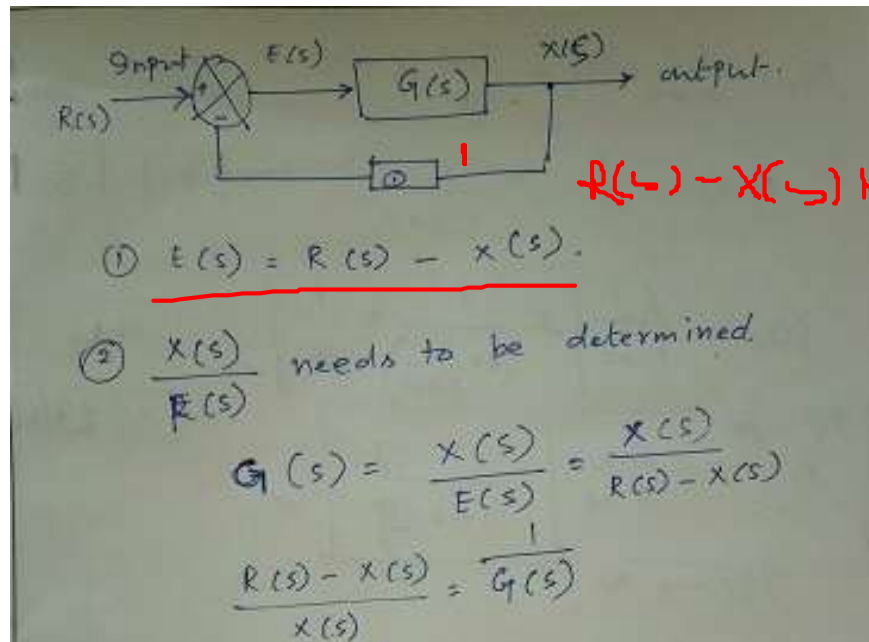 Input E(s) X(s)
R(s) + G(s) output.
-
1 1
R(s) - X(s)
① E(s) = R(s) - X(s).
② X(s)/E(s) needs to be determined.
G(s) = X(s)/E(s) = X(s)/R(s) - X(s)
R(s) - X(s)/X(s) = 1/G(s)